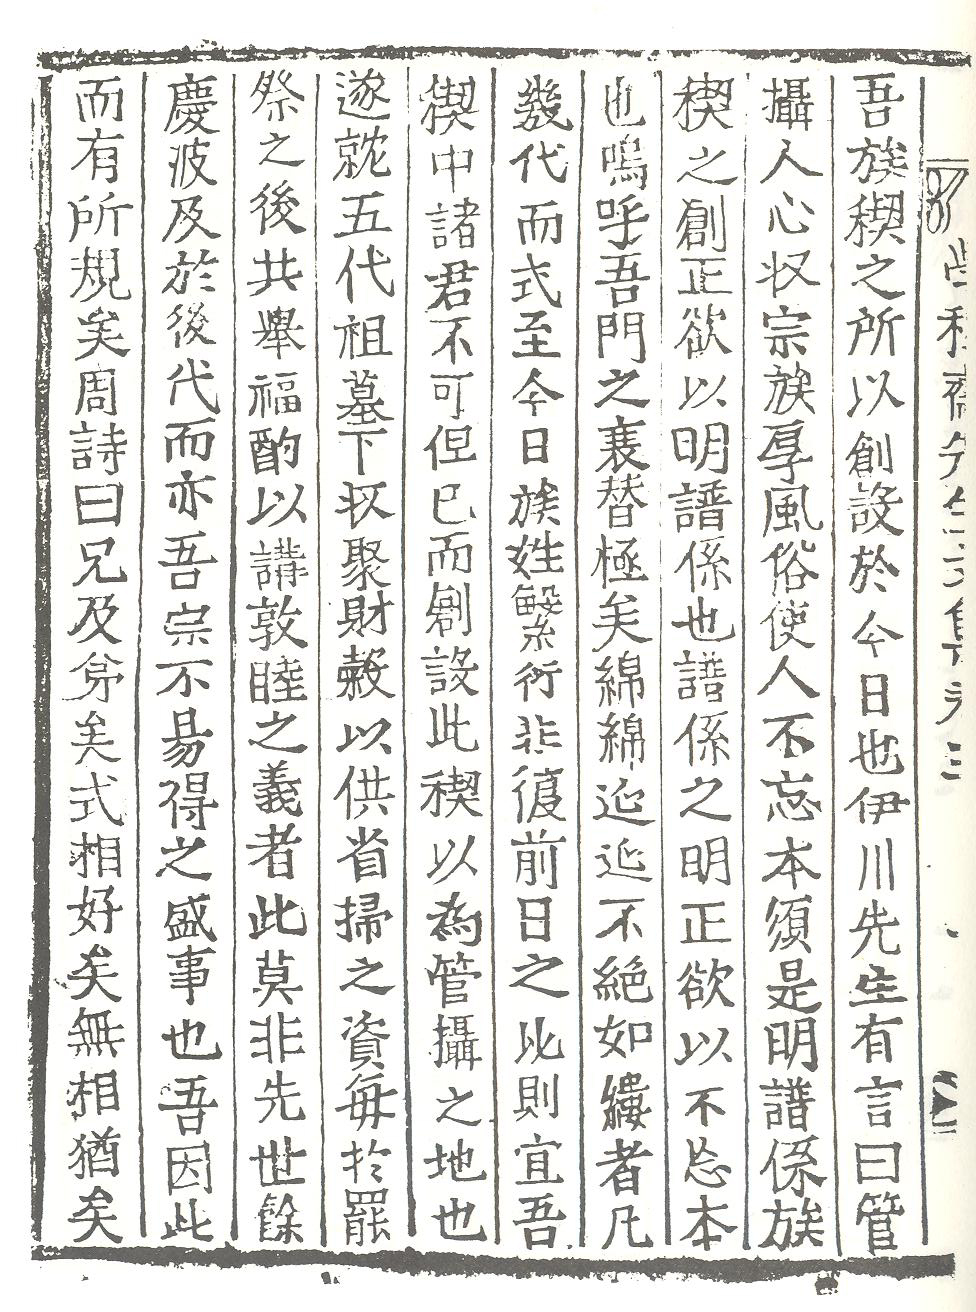 吾族稧之所以創設於今日也伊川先生有言曰管
攝人心收宗族厚風俗使人不忘本須是明譜係族
稧之創正欲以明譜係也譜係之明正欲以不忘本
也嗚呼吾門之衰替極矣綿綿延延不絶如縷者凡
幾代而式至今日族姓繁衍非復前日之比則宜吾
稧中諸君不可但已而剏設此稧以為管攝之地也
遂就五代祖墓下収聚財糓以供省掃之資每於罷
祭之後共舉福酌以講敦睦之義者此莫非先世餘
慶波及於後代而亦吾宗不易得之盛事也吾因此
而有所規矣周詩曰兄及弟矣式相好矣無相猶矣